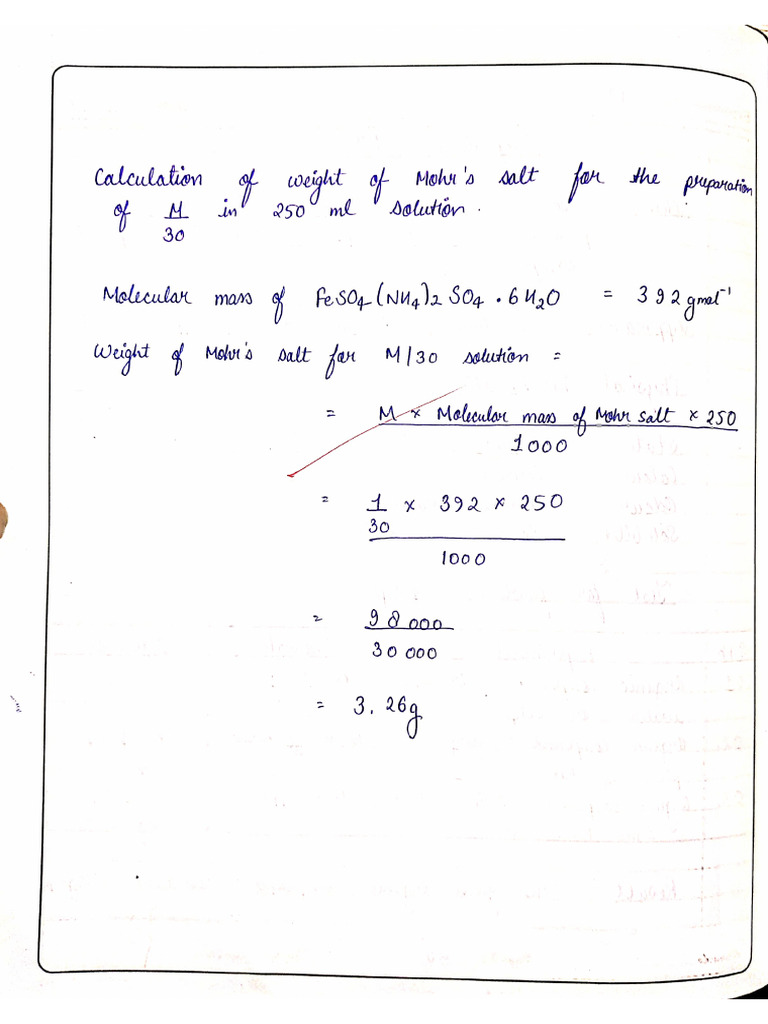 Calculation of weight of Mohr's salt for the preparation
of M/30 in 250 ml solution.
Molecular mass of FeSO4(NH4)2SO4.6H2O = 392 gmol⁻¹
Weight of Mohr's salt for M/30 solution =
= M × Molecular mass of Mohr salt × 250
1000
= 1/30 × 392 × 250
1000
= 98000
30000
= 3.26g